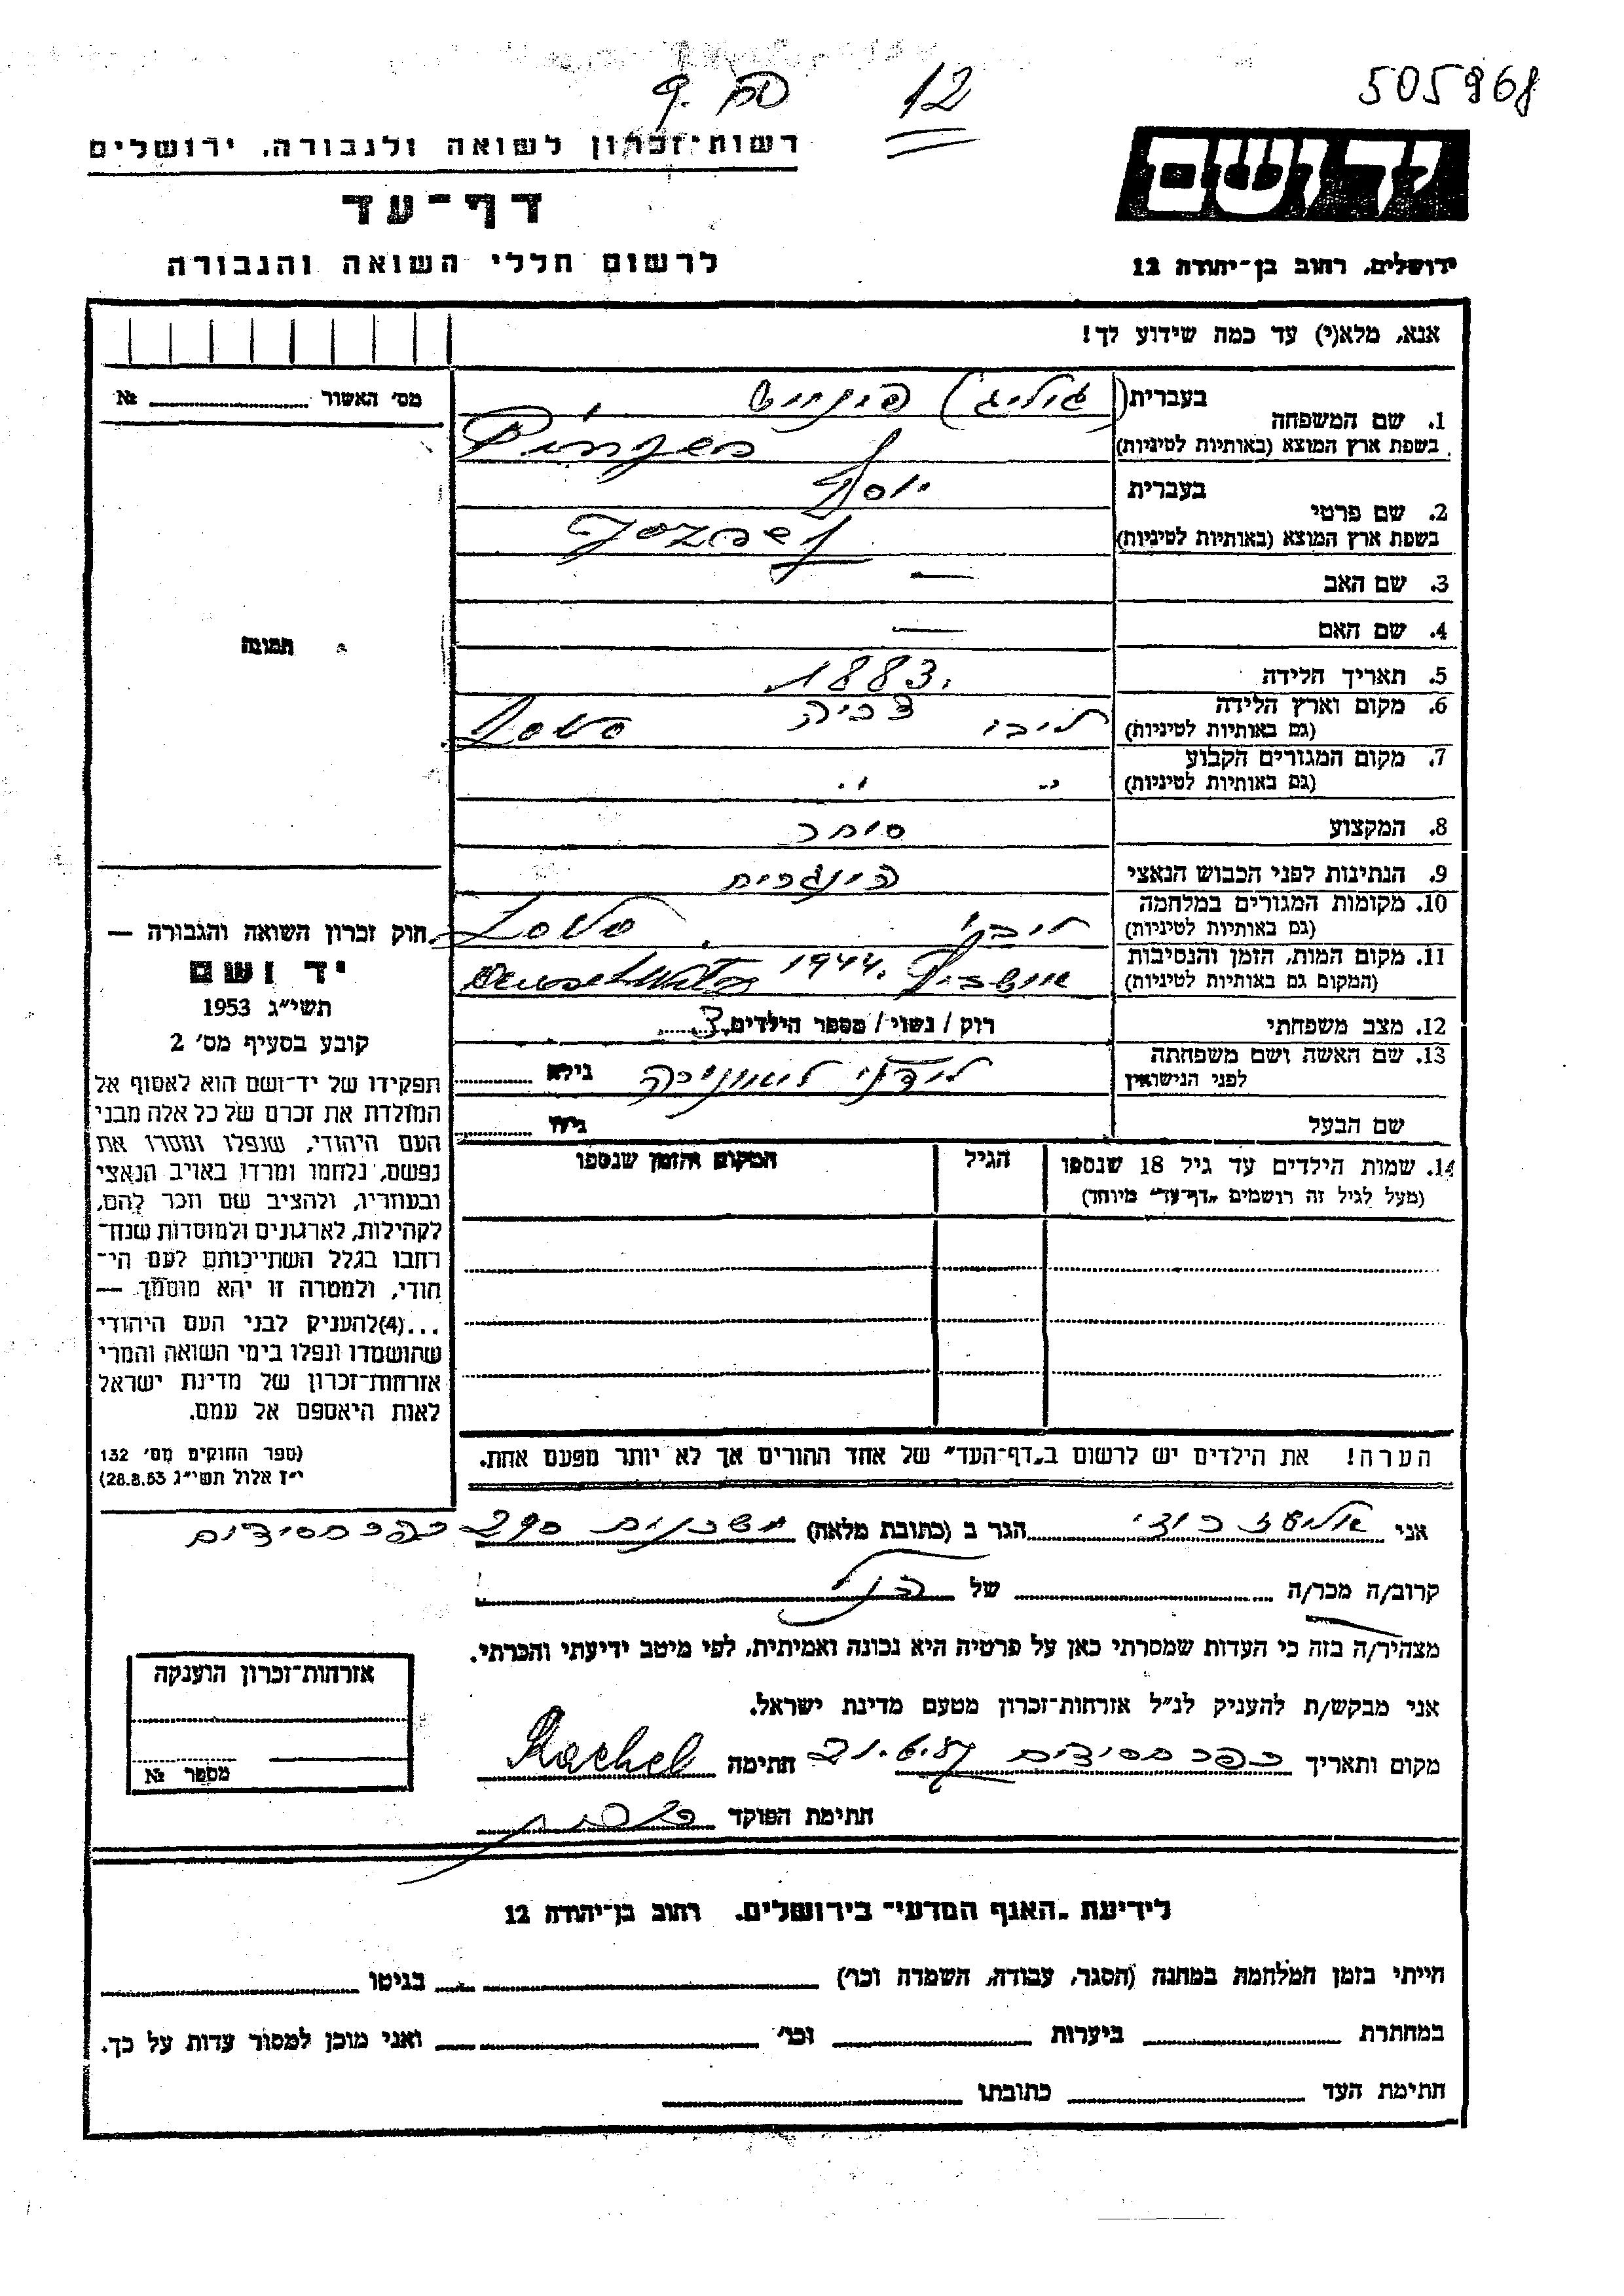 505968
12
יד ושם
רשות־זכרון לשואה ולגבורה, ירושלים
דף־עד
לרשום חללי השואה והגבורה
ירושלים, רחוב בן־יהודה 12
אנא, מלא(י) עד כמה שידוע לך!
מס׳ האשור № ........
1. שם המשפחה
בעברית
בשפת ארץ המוצא (באותיות לטיניות)
2. שם פרטי
בעברית יוסף
בשפת ארץ המוצא (באותיות לטיניות) Jozsef
3. שם האב —
4. שם האם —
5. תאריך הלידה 1883.
6. מקום וארץ הלידה
(גם באותיות לטיניות)
7. מקום המגורים הקבוע
(גם באותיות לטיניות) " "
8. המקצוע סוחר
9. הנתינות לפני הכבוש הנאצי
10. מקומות המגורים במלחמה
(גם באותיות לטיניות)
11. מקום המות, הזמן והנסיבות
(המקום גם באותיות לטיניות) אושביץ 1944.
12. מצב משפחתי רוק / נשוי / מספר הילדים 3
13. שם האשה ושם משפחתה
לפני הנישואין
גילא ........
שם הבעל גילו ........
תמונה
חוק זכרון השואה והגבורה —
יד ושם
תשי״ג 1953
קובע בסעיף מס׳ 2
תפקידו של יד־ושם הוא לאסוף אל
המולדת את זכרם של כל אלה מבני
העם היהודי, שנפלו ומסרו את
נפשם, נלחמו ומרדו באויב הנאצי
ובעוזריו, ולהציב שם וזכר להם,
לקהילות, לארגונים ולמוסדות שנח־
רבו בגלל השתייכותם לעם הי־
הודי, ולמטרה זו יהא מוסמך —
...(4)להעניק לבני העם היהודי
שהושמדו ונפלו בימי השואה והמרי
אזרחות־זכרון של מדינת ישראל
לאות היאספם אל עמם.
(ספר החוקים מס׳ 132
י״ז אלול תשי״ג 28.8.53)
14. שמות הילדים עד גיל 18 שנספו
(מעל לגיל זה רושמים „דף־עד״ מיוחד)
הגיל
המקום והזמן שנספו
הערה! את הילדים יש לרשום ב„דף־העד״ של אחד ההורים אך לא יותר מפעם אחת.
אני הגר ב (כתובת מלאה) כפר חסידים
קרוב/ה מכר/ה של
מצהיר/ה בזה כי העדות שמסרתי כאן על פרטיה היא נכונה ואמיתית, לפי מיטב ידיעתי והכרתי.
אני מבקש/ת להעניק לנ״ל אזרחות־זכרון מטעם מדינת ישראל.
מקום ותאריך כפר חסידים חתימה Rachel
חתימת הפוקד
אזרחות־זכרון הוענקה
מספר №
לידיעת „האגף המדעי״ בירושלים. רחוב בן־יהודה 12
הייתי בזמן המלחמה במחנה (הסגר, עבודה, השמדה וכו׳) ........ בגיטו ........
במחתרת ........ ביערות ........ וכו׳ ........ ואני מוכן למסור עדות על כך.
חתימת העד ........ כתובתו ........